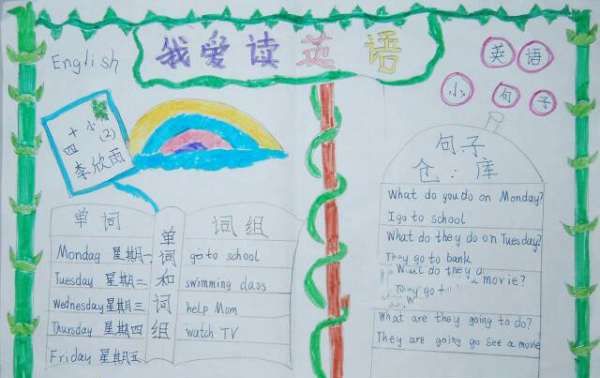 English
我爱读英语
英语
小句子
十小
四(2)
李欣雨
单词
Monday 星期一
Tuesday 星期二
Wednesday 星期三
Thursday 星期四
Friday 星期五
单词和词组
词组
go to school
swimming class
help Mom
watch TV
句子
仓:库
What do you do on Monday?
I go to school
What do they do on Tuesday?
They go to bank
do they a movie?
go to
What are they going to do?
They are going go see a movie